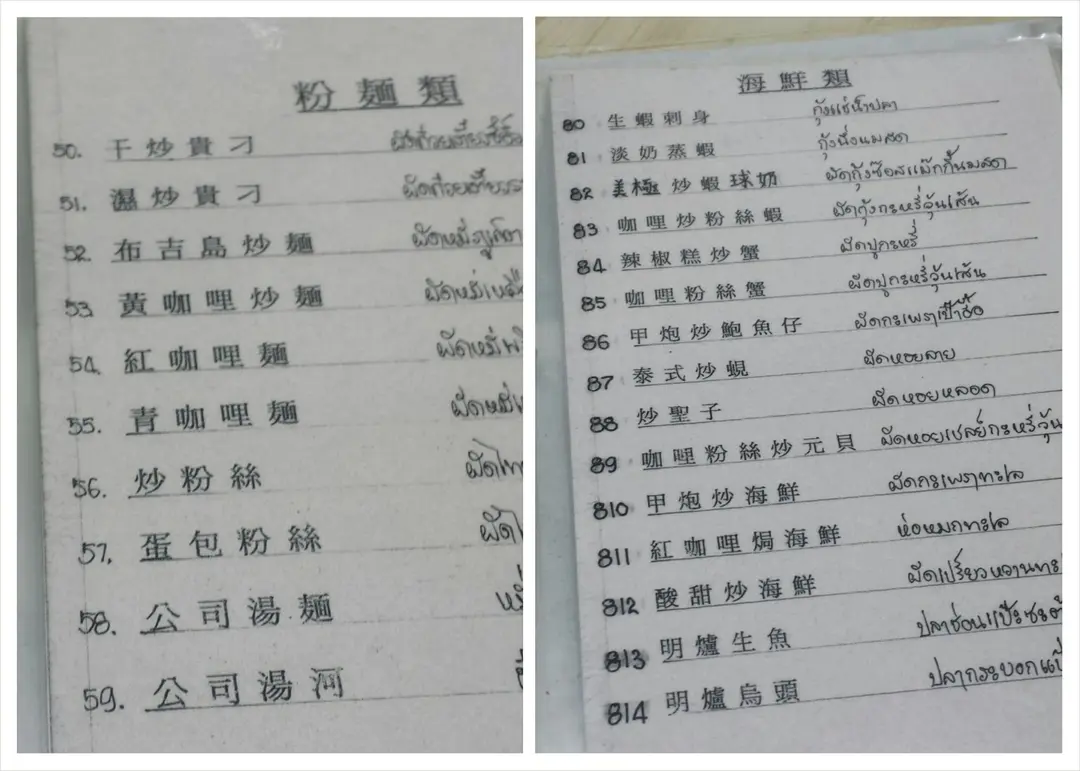 粉麵類
50. 干炒貴刁
51. 濕炒貴刁
52. 布吉島炒麵
53 黃咖哩炒麵
54. 紅咖哩麵
55. 青咖哩麵
56. 炒粉絲 ผัดไท
57. 蛋包粉絲
58. 公司湯麵
59. 公司湯河
海鮮類
80 生蝦刺身 กุ้งแช่น้ำปลา
81 淡奶蒸蝦 กุ้งนึ่งนมสด
82 美極炒蝦球奶 ผัดกุ้งซ๊อสแม๊กกี้นมสด
83 咖哩炒粉絲蝦 ผัดกุ้งกะหรี่วุ้นเส้น
84 辣椒糕炒蟹 ผัดปูกะหรี่
85 咖哩粉絲蟹 ผัดปูกะหรี่วุ้นเส้น
86 甲炮炒鮑魚仔 ผัดกะเพราเป๋าฮื้อ
87 泰式炒蜆 ผัดหอยลาย
88 炒聖子 ผัดหอยหลอด
89 咖哩粉絲炒元貝 ผัดหอยเชลย์กะหรี่วุ้น
810 甲炮炒海鮮 ผัดกะเพราทะเล
811 紅咖哩焗海鮮 ห่อหมกทะเล
812 酸甜炒海鮮 ผัดเปรี้ยวหวานทะ
813 明爐生魚 ปลาช่อนแป๊ะซะ
814 明爐烏頭 ปลากระบอกแป๊